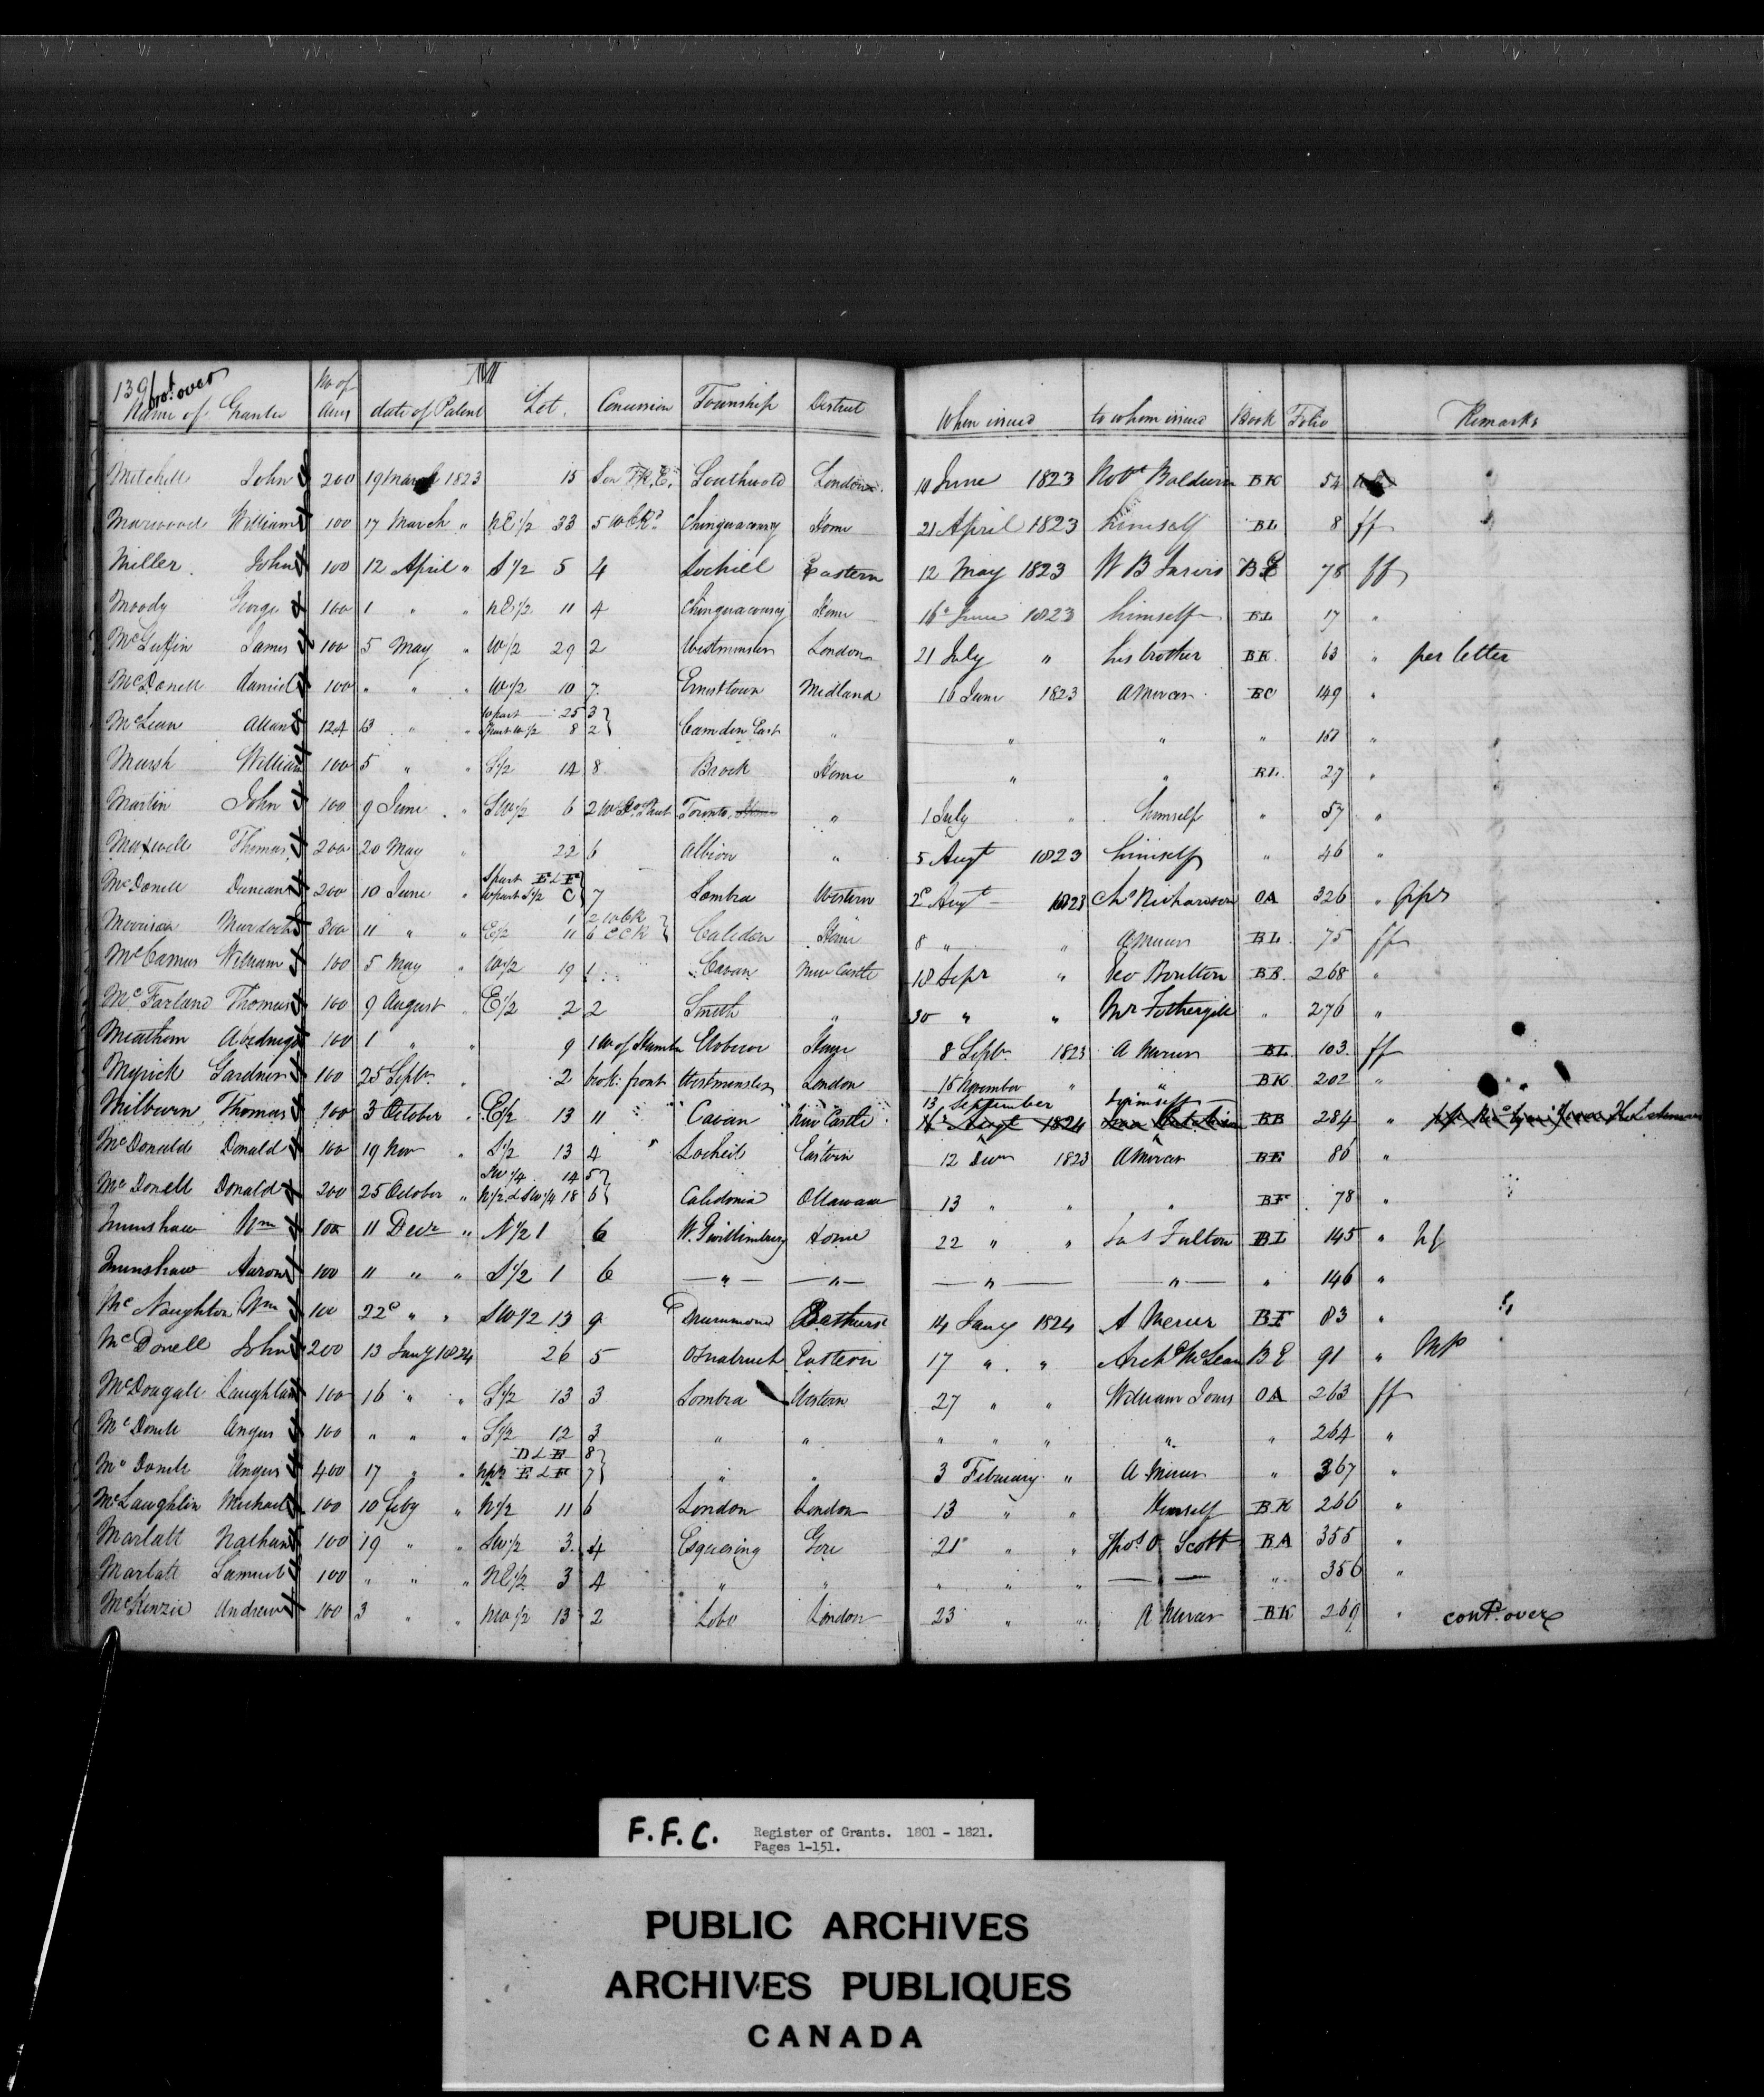 139 bro.t over M
Name of Grantee No of Acres date of Patent Lot. Concession Township District When issued to whom issued Book Folio Remarks
Mitchell John 200 19 March 1823 15 Southwold London 10 June 1823 Rob.t Baldwin BK 54
Marwood William 100 17 March " NE 1/2 33 5 Chinguacousy Home 21 April 1823 himself BL 8 ff
Miller John 100 12 April " S 1/2 5 4 Lochiel Eastern 12 May 1823 W B Jarvis BE 78 ff
Moody George 100 1 " " NE 1/2 11 4 Chinguacousy Home 16 June 1823 himself BL 17 "
McGuffin James 100 5 May " W 1/2 29 2 Westminster London 21 July " his brother BK 63 " per letter
McDonell 100 " " " W 1/2 10 7 Ernesttown Midland 16 June 1823 A Mercer BC 149 "
McLean Allan 124 13 " " W part 25 3
W 1/2 8 2 } Camden East " " " " "
Marsh William 100 5 " " S 1/2 14 8 Brock Home " " BL 27 "
Martin John 100 9 June " SW 1/2 6 2 W Street Toronto " 1 July " himself " 37 "
Maxwell Thomas 200 20 May " 22 6 Albion " 5 Augt 1823 himself " 46 "
McDonell Duncan 200 10 June " S part E & F
W part S 1/2 C } 7 Sombra Western 2 Augt 1823 Richardson OA 326 "
Morrison Murdoch 300 11 " " 1 2 WCR
E 1/2 11 6 ECR } Caledon Home 8 " " A Mercer BL 75 ff
McCamus William 100 5 May " W 1/2 19 1 Cavan New Castle 18 Sepr " Geo Boulton BB 268 "
McFarland Thomas 100 9 August " E 1/2 2 2 Smith " 30 " " Mr Fothergill " 276 "
Abednego 100 1 " " 9 1 W of Humber Etobicoe Home 8 Septr 1823 A Mercer BL 103 ff
Myrick Gardner 100 25 Septr " 2 brok: front Westminster London 15 November " " BK 202 "
Milburn Thomas 3 October " E 1/2 13 11 Cavan New Castle 13 September himself BB 284 "
Augt 1824
McDonald Donald 100 19 Nov " S 1/2 13 4 Locheil Eastern 12 Decr 1823 A Mercer BE 86 "
McDonell Donald 200 25 October " SW 1/4 14 5
N 1/2 & SW 1/4 18 6 } Caledonia Ottawa 13 " " " BF 78 "
Munshaw Wm 100 11 Decr " N 1/2 1 6 W. Gwillimbury Home 22 " " Ja S Fulton BI 145 "
Munshaw Aaron 100 11 " " S 1/2 1 6 " " " " " 146 "
McNaughton Wm 100 22 " " SW 1/2 13 9 Drummond Bathurst 14 Jany 1824 A Mercer BF 83 "
McDonell John 200 13 Jany 1824 26 5 Osnabruck Eastern 17 " " Archd McLean BE 91 "
McDougall Laughlan 100 16 " " S 1/2 13 3 Sombra Western 27 " " William Jones OA 263 ff
McDonell Angus 100 " " " S 1/2 12 3 " " " " " " " 264 "
McDonell Angus 400 17 " " D & E 8
E & F 7 } " " 3 February " A Mercer " 367 "
McLaughlin Michael 100 10 Feby " N 1/2 11 6 London London 13 " " Himself BK 266 "
Marlatt Nathan 100 19 " " SW 1/2 3 4 Esquesing Gore 21 " " Thos. O Scott BA 355 "
Marlatt Samuel 100 " " " NE 1/2 3 4 " " " " " " 356 "
McKinzie Andrew 100 3 " " NW 1/2 13 2 Lobo London 23 " " A Mercer BK 269 " cont.d over
F.F.C. Register of Grants. 1801 - 1821.
Pages 1-151.
PUBLIC ARCHIVES
ARCHIVES PUBLIQUES
CANADA